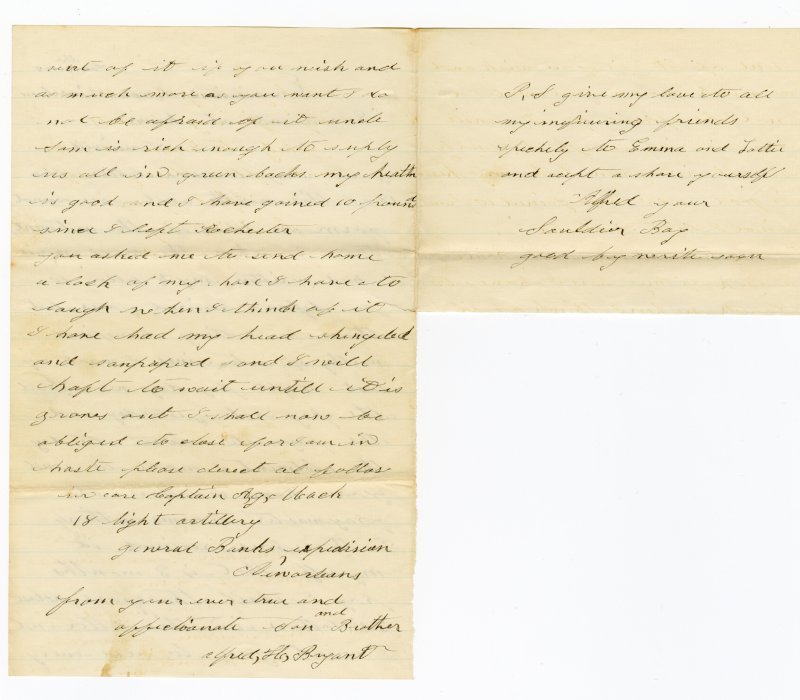 out of it if you wish and
as much more as you want & do
not be afraid of it uncle
Sam is rich enough to suply
us all in green backs my health
is good and I have gained 10 pounds
since I left Rochester
you asked me to send home
a lock of my hare I have to
laugh when I think of it
I have had my head shingeled
and sanpaperd and I will
haft to wait untill it is
grones out I shall now be
obliged to close for I am in
haste please derect as follos
in care Captain A, G, Mack
18 light artillery
general Banks expedision
Neworleans
from your ever true and
affectionate Son and Brother
alfred, H, Bryant
P, S give my love to all
my inquiring friends
spechely to Emma and Lottie
and acept a share yourself
Alfred your
Souldier Boy
good by write soon